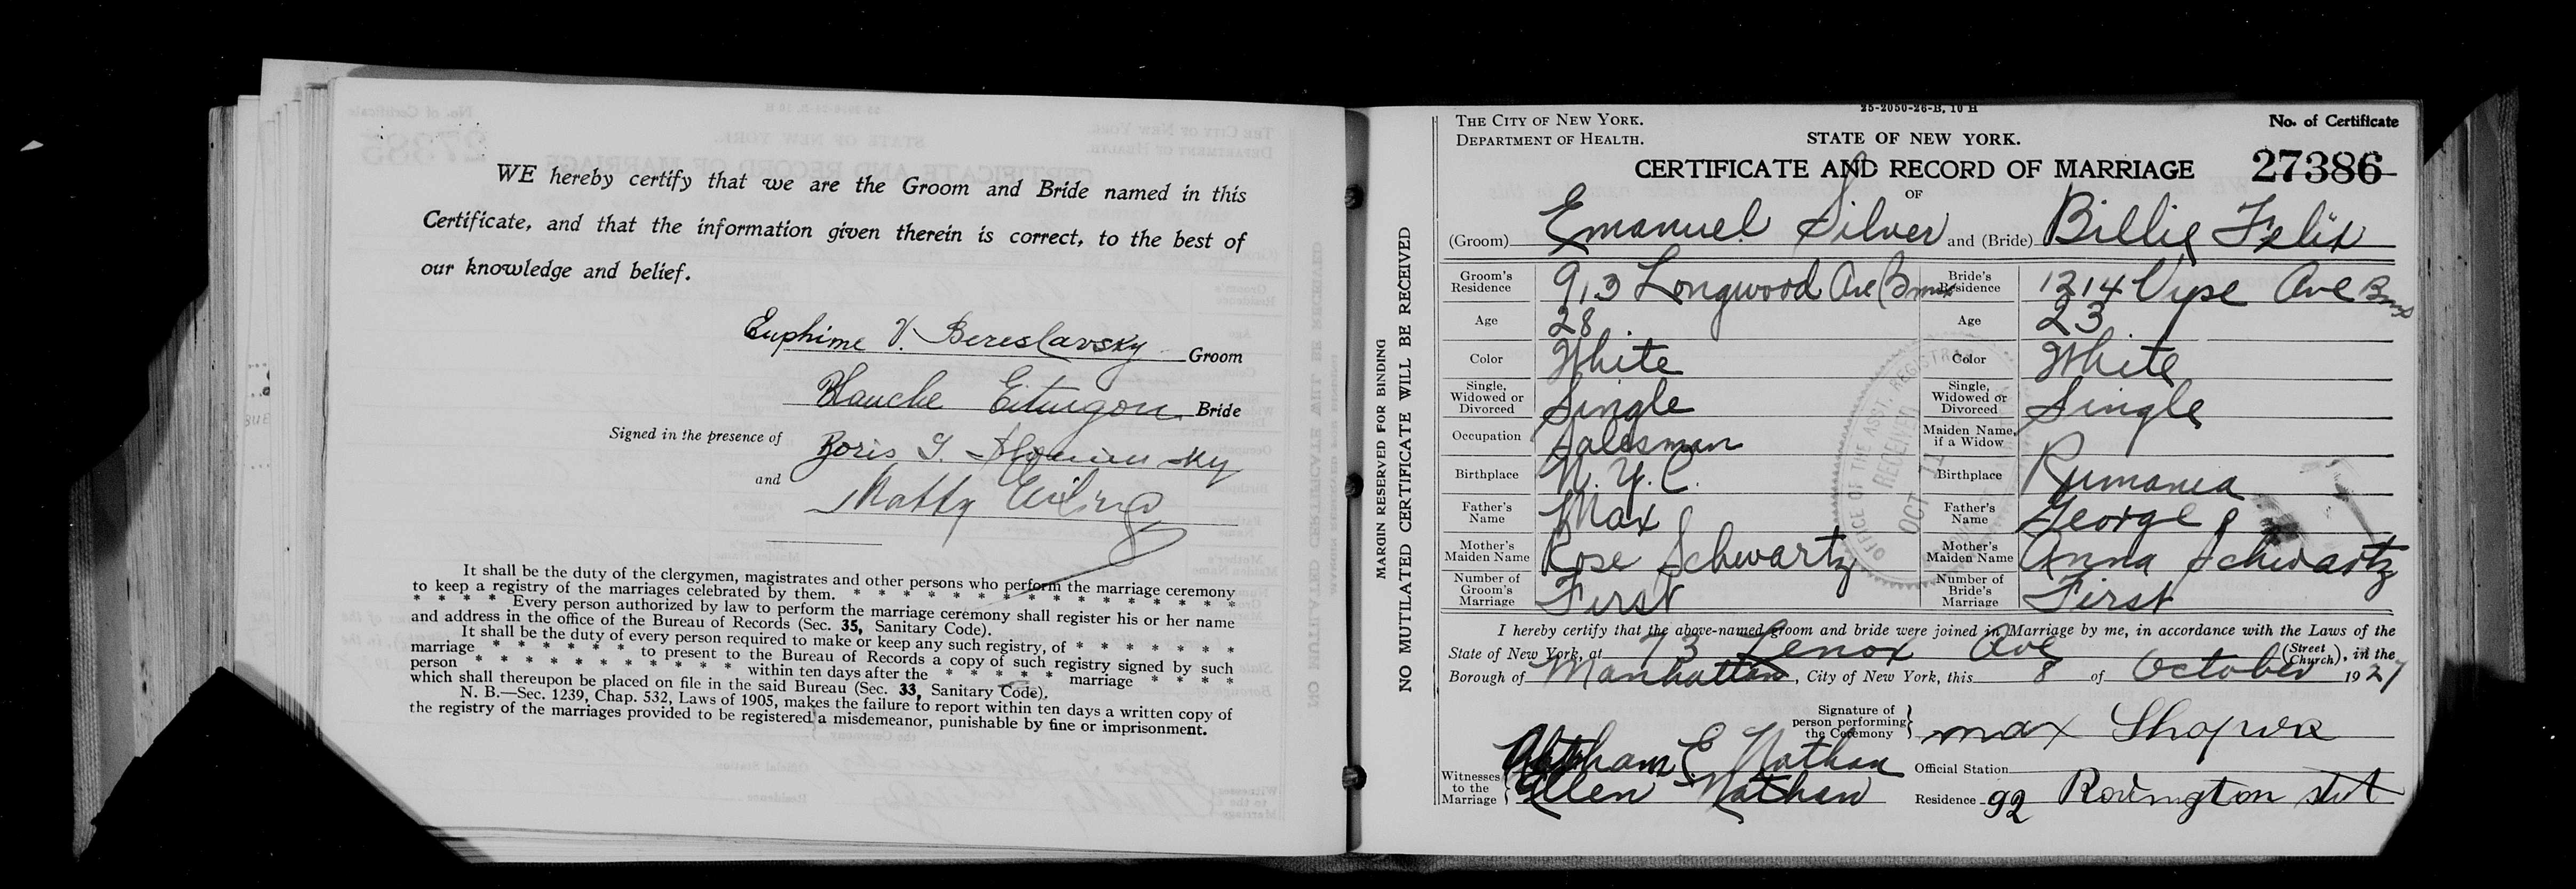 WE hereby certify that we are the Groom and Bride named in this
Certificate, and that the information given therein is correct, to the best of
our knowledge and belief.
Euphime V. Bereslavsky Groom
Blanche Eitingon Bride
Signed in the presence of Boris
and Matty
It shall be the duty of the clergymen, magistrates and other persons who perform the marriage ceremony
to keep a registry of the marriages celebrated by them. * * * * * * * * * * * * * * *
* * * * * Every person authorized by law to perform the marriage ceremony shall register his or her name
and address in the office of the Bureau of Records (Sec. 35, Sanitary Code).
It shall be the duty of every person required to make or keep any such registry, of * * * * * * *
marriage * * * * * * * to present to the Bureau of Records a copy of such registry signed by such
person * * * * * * * * * * * * within ten days after the * * * * * marriage * * * *
which shall thereupon be placed on file in the said Bureau (Sec. 33, Sanitary Code).
N. B.—Sec. 1239, Chap. 532, Laws of 1905, makes the failure to report within ten days a written copy of
the registry of the marriages provided to be registered a misdemeanor, punishable by fine or imprisonment.
MARGIN RESERVED FOR BINDING
NO MUTILATED CERTIFICATE WILL BE RECEIVED
25-2050-26-B, 10 H
THE CITY OF NEW YORK.
DEPARTMENT OF HEALTH.
STATE OF NEW YORK.
No. of Certificate
CERTIFICATE AND RECORD OF MARRIAGE 27386
OF
(Groom) Emanuel Silver and (Bride) Billie Felix
Groom's Residence 913 Longwood Ave Bronx Bride's Residence 1214 Vyse Ave Bronx
Age 28 Age 23
Color White Color White
Single, Widowed or Divorced Single Single, Widowed or Divorced Single
Occupation Salesman Maiden Name, if a Widow
Birthplace N. Y. C. Birthplace Rumania
Father's Name Max Father's Name George
Mother's Maiden Name Rose Schwartz Mother's Maiden Name Anna Schwartz
Number of Groom's Marriage First Number of Bride's Marriage First
OFFICE OF THE ASST. REGISTRAR
RECEIVED
OCT 11
I hereby certify that the above-named groom and bride were joined in Marriage by me, in accordance with the Laws of the
State of New York, at 73 Lenox Ave (Street Church), in the
Borough of Manhattan, City of New York, this 8 of October 1927
Signature of person performing the Ceremony Max Shapiro
Witnesses to the Marriage Abraham E Nathan
Ellen Nathan
Official Station
Residence 92 Rivington